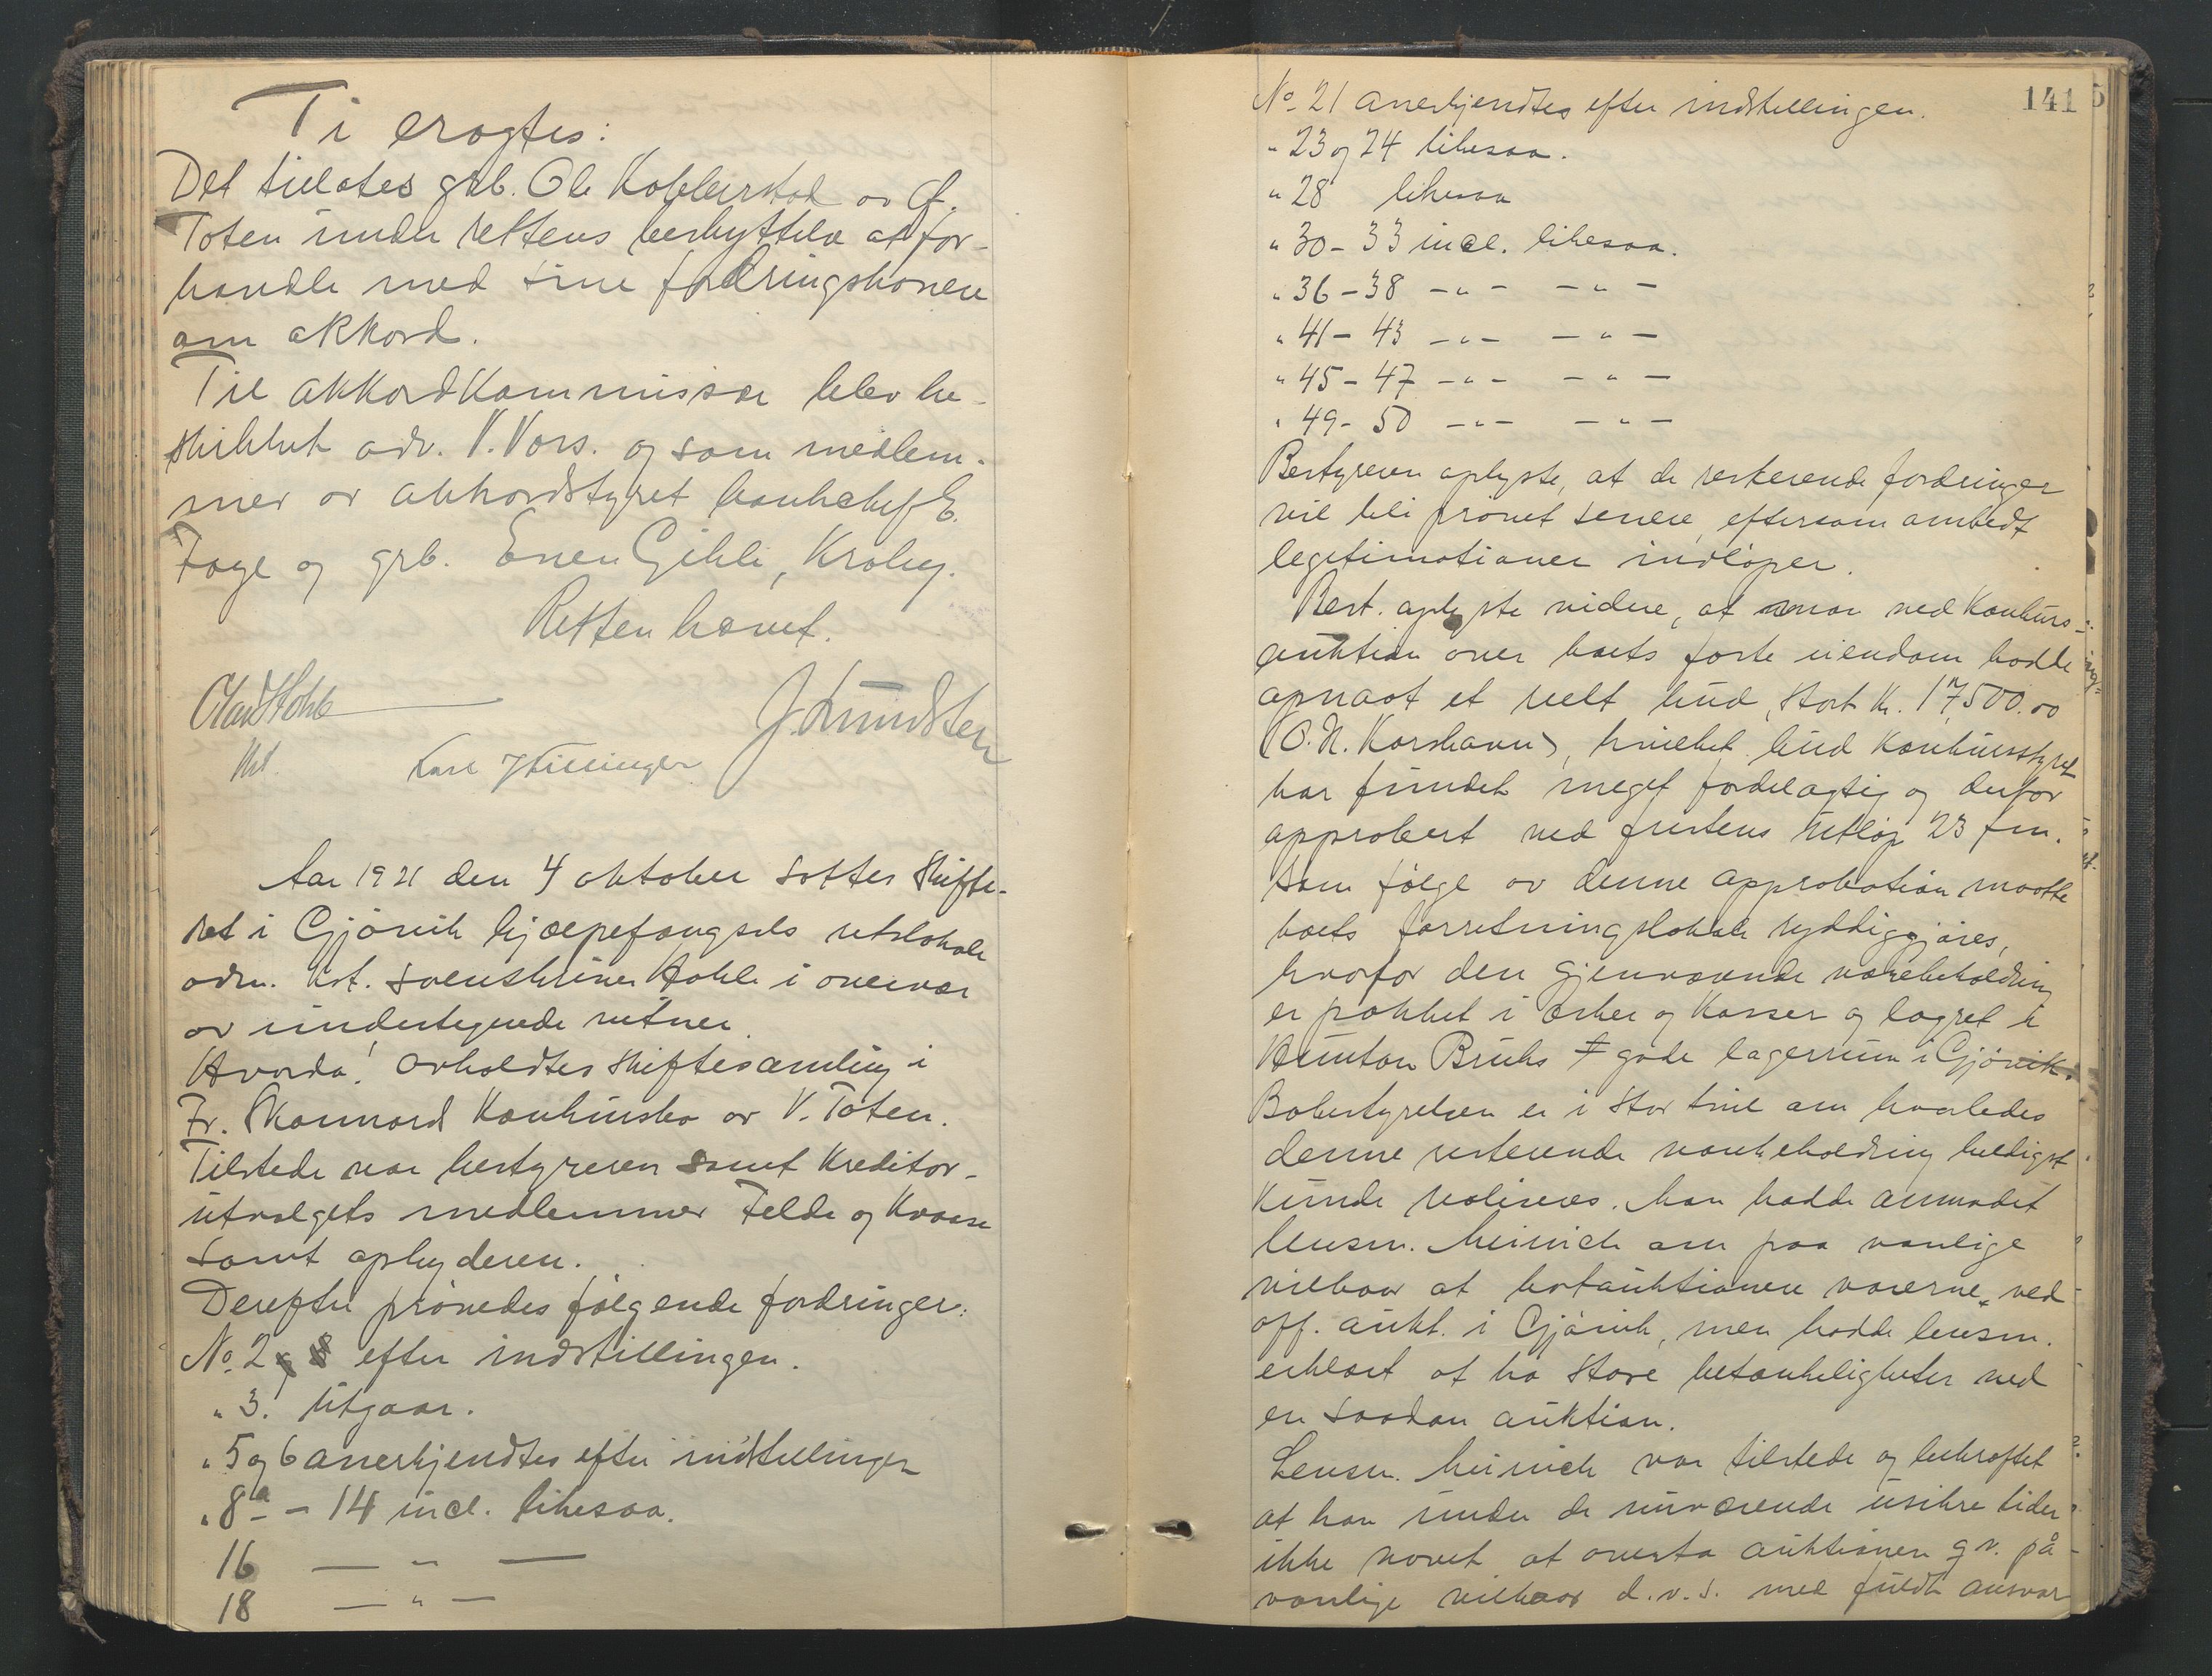 Ti eragtes:
Det tillates grb. Ole Kobberstad av Ø.
Toten under rettens beskyttelse at for-
handle med sine fordringshavere
om akkord.
Til akkordkommissær blev be-
skikket adv. V. Vors. og som medlem-
mer av akkordstyret bankchef E.
Foge og grb. Even Gihle, Kraby.
Retten hævet.
J. Lundsten
Kst.
Karl Hillinger
Aar 1921 den 4 oktober sattes skifte-
ret i Gjøvik hjælpefængsels retslokale
adm. kst. sorenskriver Hohle i overvær
av undertegnede vitner.
Hvorda: Avholdtes skiftesamling i
Fr. Skonnord Konkursbo av V. Toten.
Tilstede var bestyreren samt kreditor-
utvalgets medlemmer Felde og
samt opbyderen.
Derefter prøvedes følgende fordringer:
No. 2 efter indstillingen.
" 3. Utgaar.
" 5 og 6 anerkjendtes efter indstillingen
" 8a - 14 incl. likesaa.
16 — " —
18 — " —
141
No. 21 anerkjendtes efter indstillingen.
" 23 og 24 likesaa.
" 28 likesaa
" 30 - 33 incl. likesaa.
" 36 - 38 - " - - " -
" 41 - 43 - " - - " -
" 45 - 47 - " - - " -
" 49 - 50 - " - - " -
Bestyreren oplyste, at de resterende fordringer
vil bli prøvet senere, eftersom ombedt
legitimationer indløper.
Best. oplyste videre, at man ved konkurs-
auktion over boets faste eiendom hadde
opnaat et reelt bud, stort kr. 17,500.00
(O. N. Korshavn), hvilket bud konkursstyret
har fundet meget fordelagtig og derfor
approbert ved fristens utløp 23 f.m.
Som følge av denne approbation maatte
boets forretningslokale ryddiggjøres,
hvorfor den gjenværende varebeholdning
er pakket i æsker og kasser og lagret i
Hunton Bruks gode lagerrum i Gjøvik.
Bobestyrelsen er i stor tvil om hvorledes
denne resterende varebeholdning heldigst
kunde realiseres. Man hadde anmodet
lensm. Meinich om paa vanlige
vilkaar at bortauktionere varerne ved
off. aukt. i Gjøvik, men hadde lensm.
erklært at ha store betænkeligheter ved
en saadan auktion.
Lensm. Meinich var tilstede og bekræftet
at han under de nuværende usikre tider
ikke vovet at overta auktionen q.v. på
vanlige vilkaar d.v.s. med fuldt ansvar